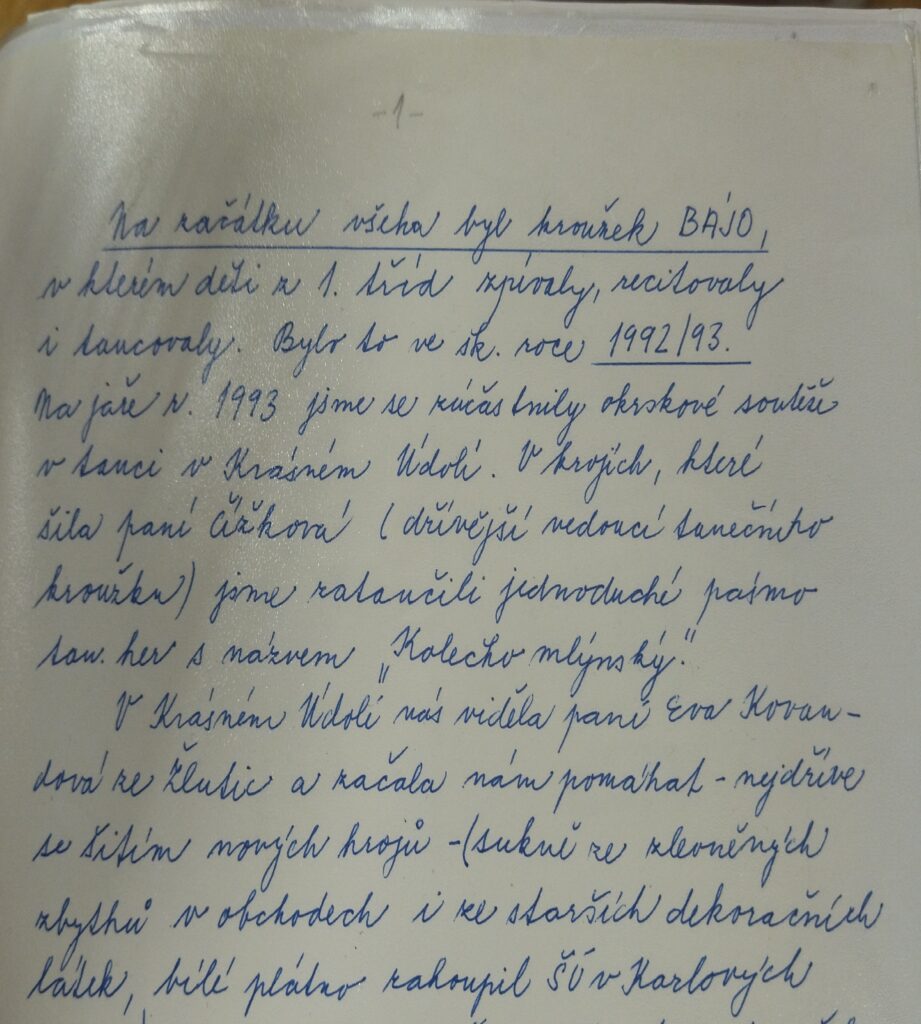 -1-
Na začátku všeha byl kroužek BÁJO,
v kterém děti z 1. tříd zpívaly, recitovaly
i tancovaly. Bylo to ve šk. roce 1992/93.
Na jaře r. 1993 jsme se zúčastnily okrskové soutěže
v tanci v Krásném Údolí. V krojích, které
šila paní Čížková (dřívější vedoucí tanečního
kroužku) jsme zatančili jednoduché pásmo
tan. her s názvem „Kolečko mlýnský."
V Krásném Údolí nás viděla paní Eva Kovan-
dová ze Žlutic a začala nám pomáhat - nejdříve
se šitím nových krojů - (sukně ze zlevněných
zbytků v obchodech i ze starších dekoračních
látek, bílé plátno zakoupil ŠÚ v Karlových